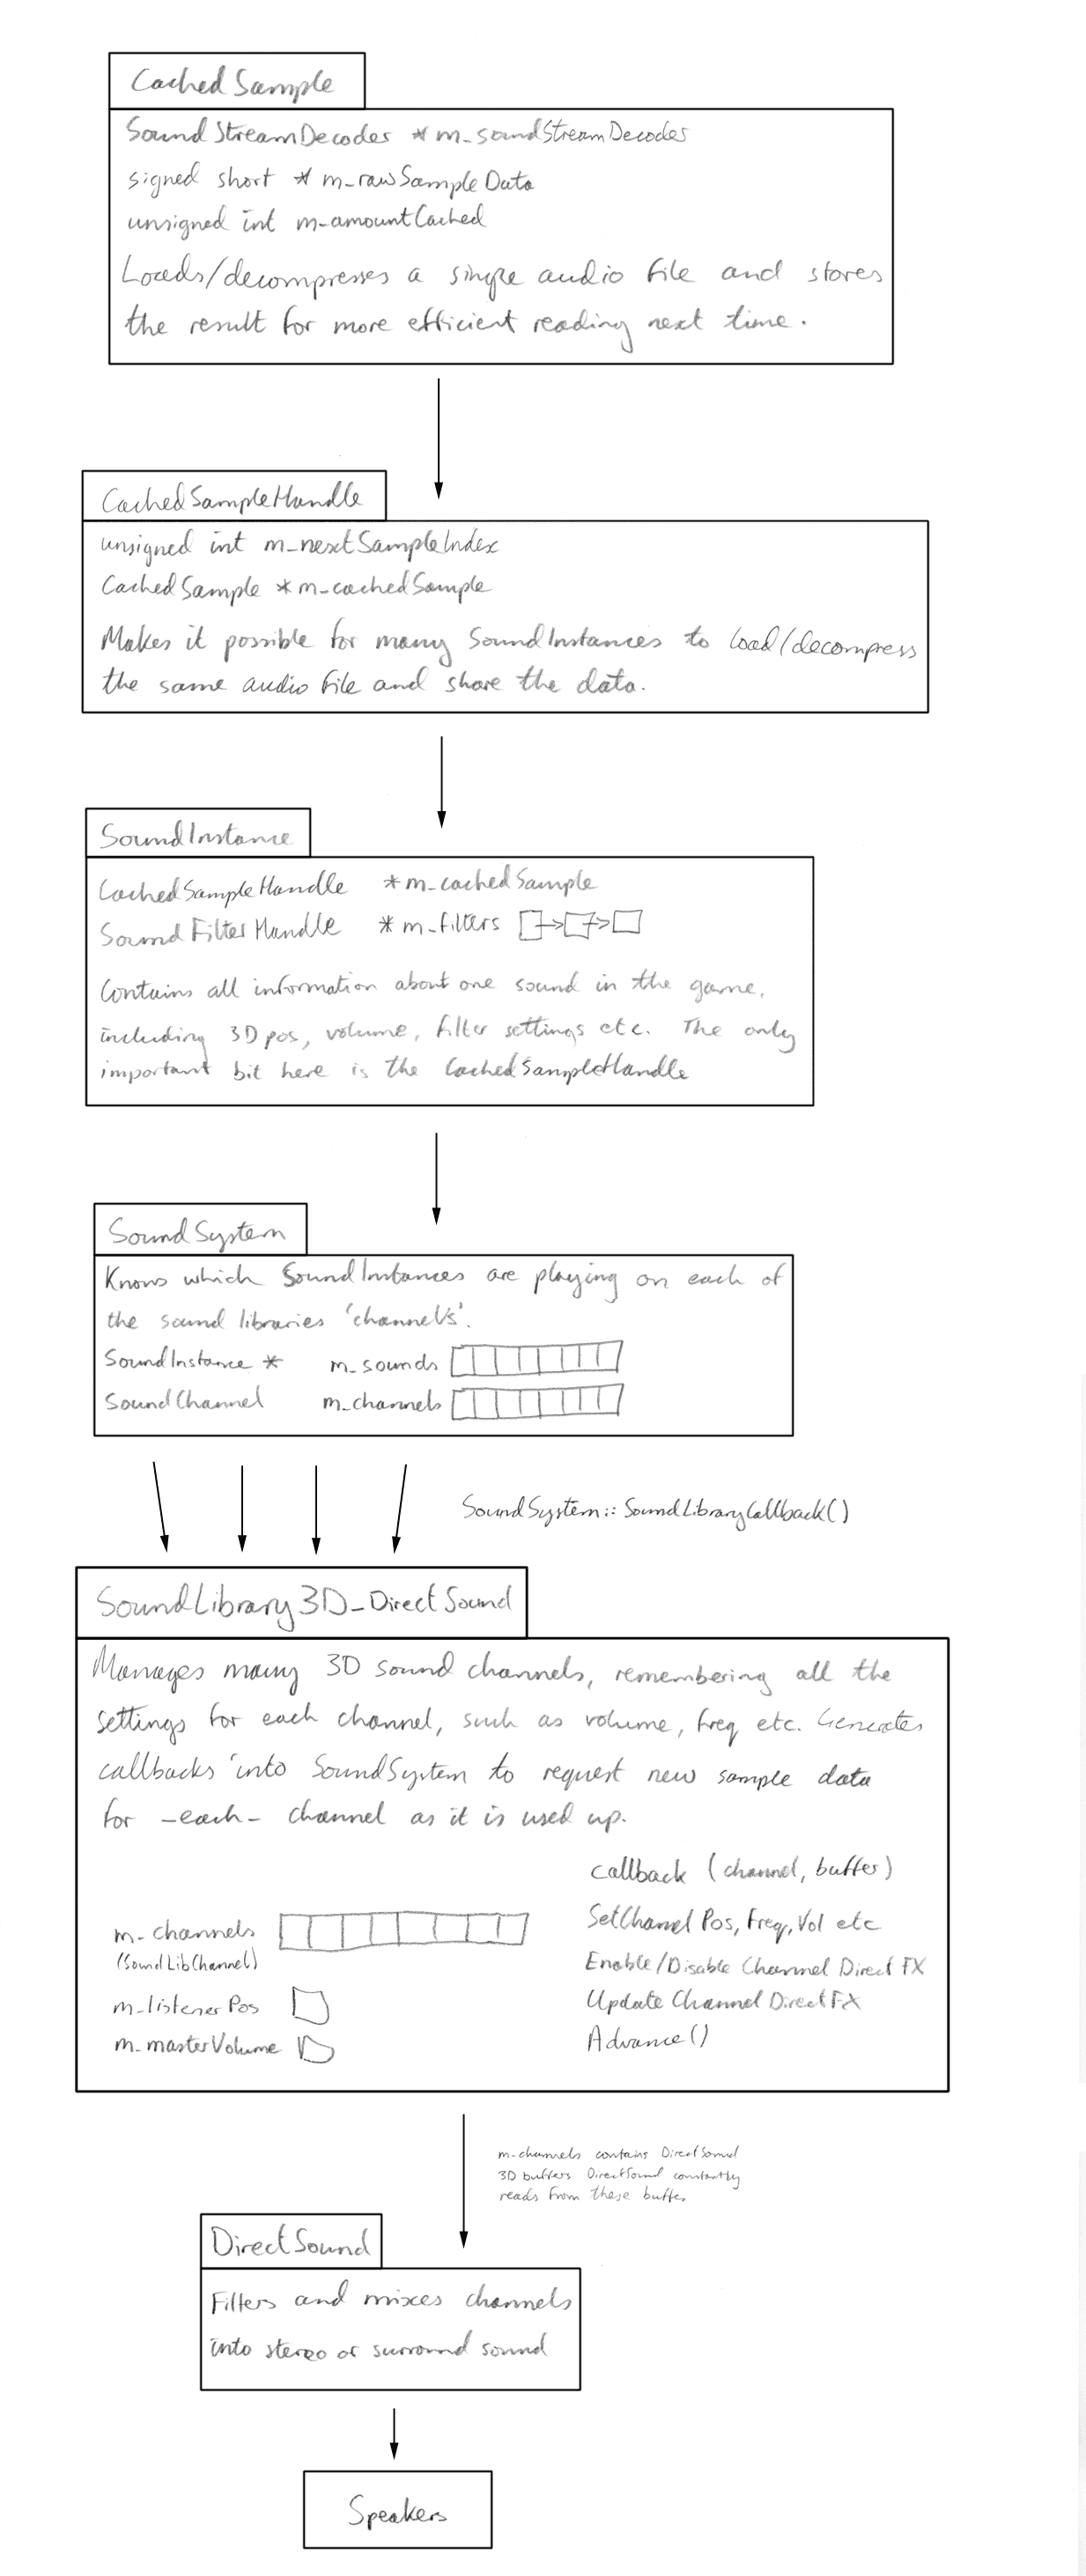 CachedSample
SoundStreamDecoder *m_soundStreamDecoder
signed short *m_rawSampleData
unsigned int m_amountCached
Loads/decompresses a single audio file and stores
the result for more efficient reading next time.
CachedSampleHandle
unsigned int m_nextSampleIndex
CachedSample *m_cachedSample
Makes it possible for many SoundInstances to load/decompress
the same audio file and share the data.
SoundInstance
CachedSampleHandle *m_cachedSample
SoundFilterHandle *m_filters
Contains all information about one sound in the game,
including 3D pos, volume, filter settings etc. The only
important bit here is the CachedSampleHandle
SoundSystem
Knows which SoundInstances are playing on each of
the sound libraries 'channels'.
SoundInstance * m_sounds
SoundChannel m_channels
SoundSystem::SoundLibraryCallback()
SoundLibrary3D_DirectSound
Manages many 3D sound channels, remembering all the
settings for each channel, such as volume, freq etc. Generates
callbacks into SoundSystem to request new sample data
for -each- channel as it is used up.
callback (channel, buffer)
SetChannel Pos, Freq, Vol etc
Enable/Disable Channel DirectFX
Update Channel DirectFX
Advance()
m_channels
(SoundLibChannel)
m_listenerPos
m_masterVolume
m_channels contains DirectSound
3D buffers DirectSound constantly
reads from these buffers
DirectSound
Filters and mixes channels
into stereo or surround sound
Speakers